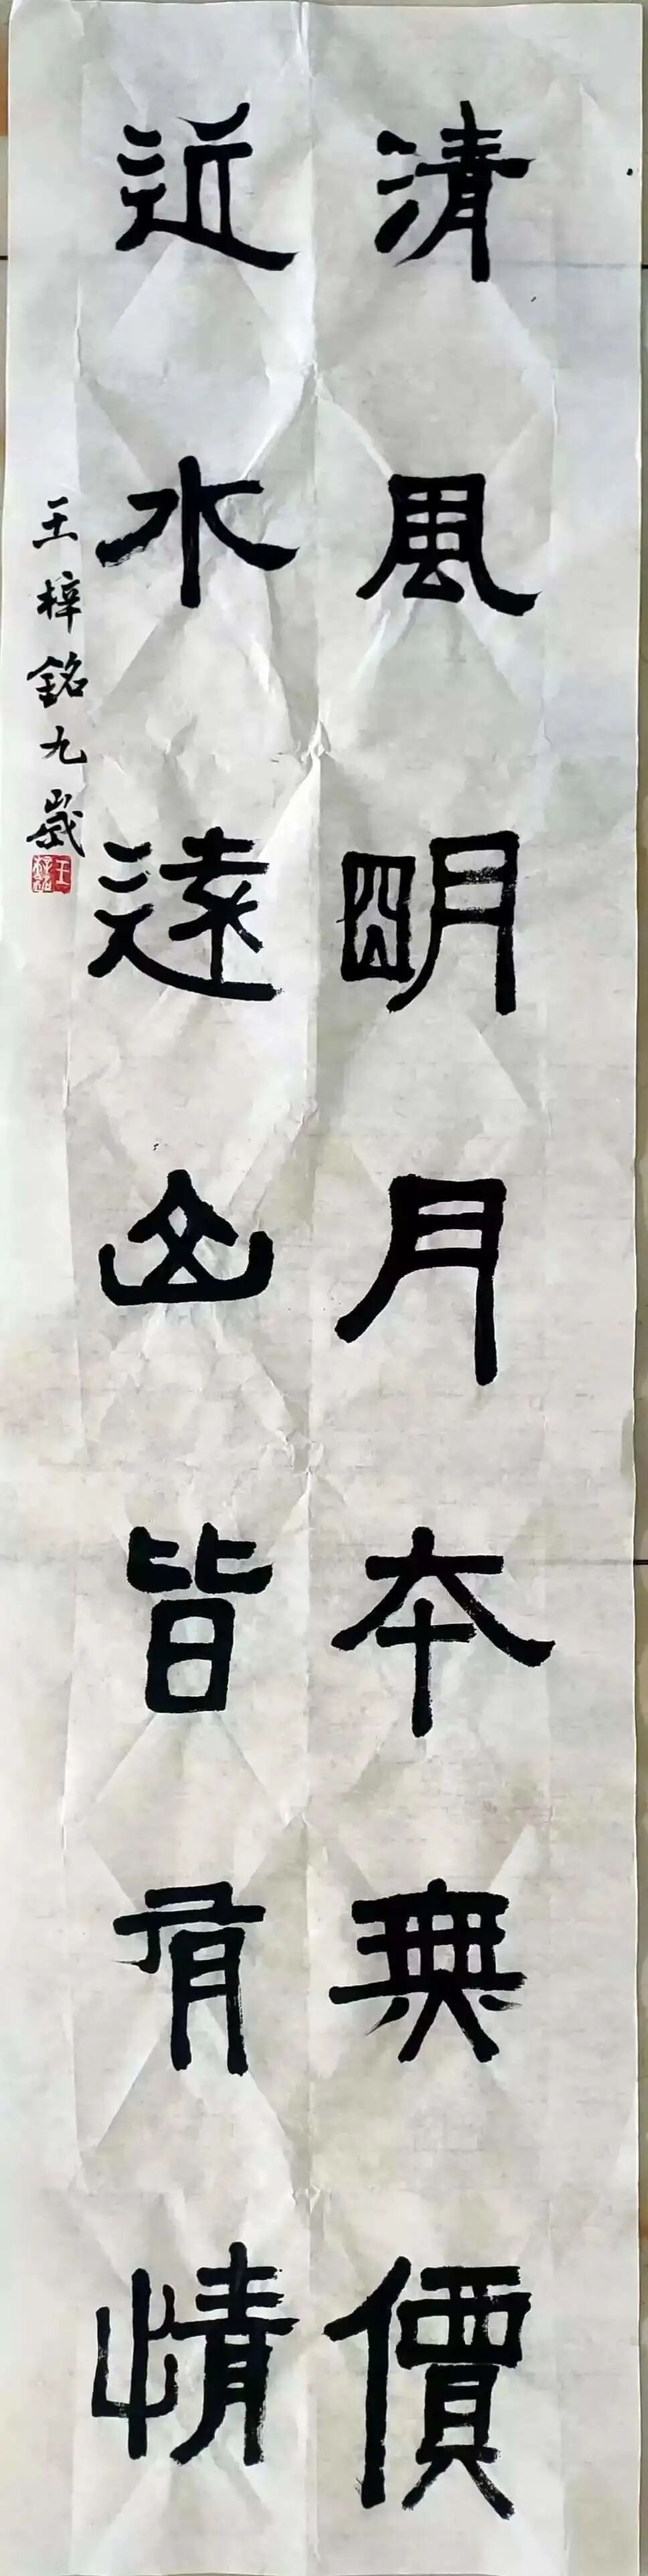 清風明月本無價
近水遠山皆有情
王梓銘九歲
王梓銘